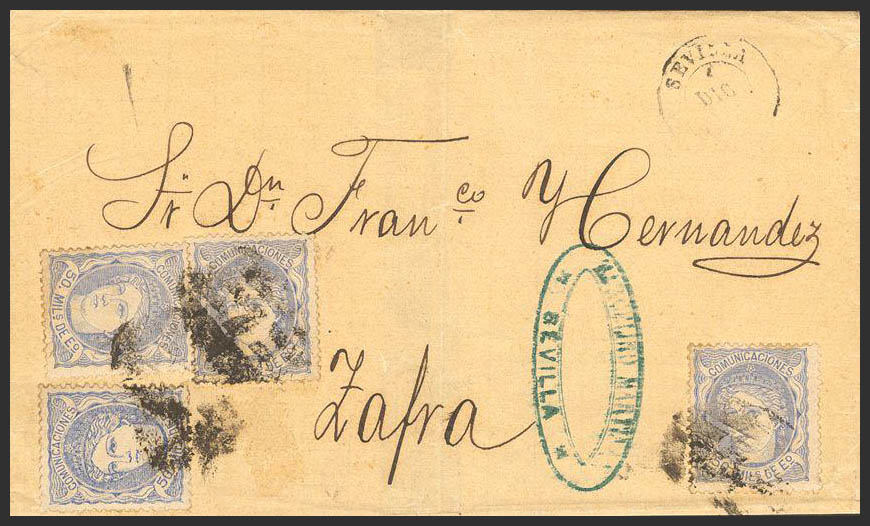 SEVILLA
1
DIC
Sr. Dn. Franco Hernandez
Zafra
COMUNICACIONES
50. MILS DE Eo.
COMUNICACIONES
COMUNICACIONES
50
SEVILLA
COMUNICACIONES
MILS DE Eo.